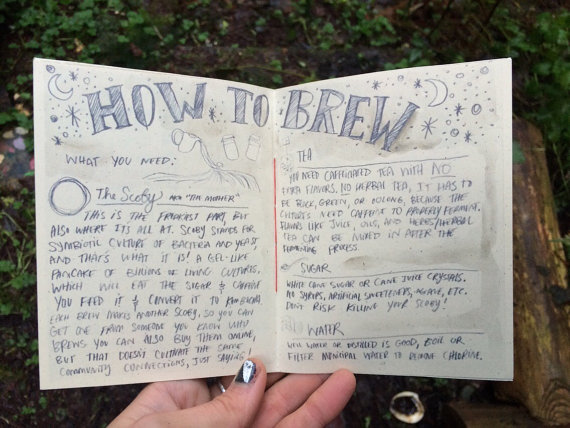 HOW TO BREW
WHAT YOU NEED:
The Scoby AKA "THE MOTHER"
THIS IS THE FREAKIEST PART, BUT
ALSO WHERE ITS ALL AT. SCOBY STANDS FOR
SYMBIOTIC CULTURE OF BACTERIA AND YEAST
AND THAT'S WHAT IT IS! A GEL-LIKE
PANCAKE OF BILLIONS OF LIVING CULTURES,
WHICH WILL EAT THE SUGAR & CAFFEINE
YOU FEED IT & CONVERT IT TO KOMBUCHA.
EACH BREW MAKES ANOTHER SCOBY, SO YOU CAN
GET ONE FROM SOMEONE YOU KNOW WHO
BREWS. YOU CAN ALSO BUY THEM ONLINE,
BUT THAT DOESN'T CULTIVATE THE SAME
COMMUNITY CONNECTIONS, JUST SAYING!
TEA
YOU NEED CAFFEINATED TEA WITH NO
EXTRA FLAVORS. NO HERBAL TEA, IT HAS TO
BE BLACK, GREEN, OR OOLONG, BECAUSE THE
CULTURES NEED CAFFEINE TO PROPERLY FERMENT.
FLAVORS LIKE JUICE, OILS, AND HERBS/HERBAL
TEA CAN BE MIXED IN AFTER THE
FERMENTING PROCESS.
SUGAR
WHITE CANE SUGAR OR CANE JUICE CRYSTALS.
NO SYRUPS, ARTIFICIAL SWEETENERS, AGAVE, ETC.
DON'T RISK KILLING YOUR SCOBY!
WATER
WELL WATER OR DISTILLED IS GOOD, BOIL OR
FILTER MUNICIPAL WATER TO REMOVE CHLORINE.